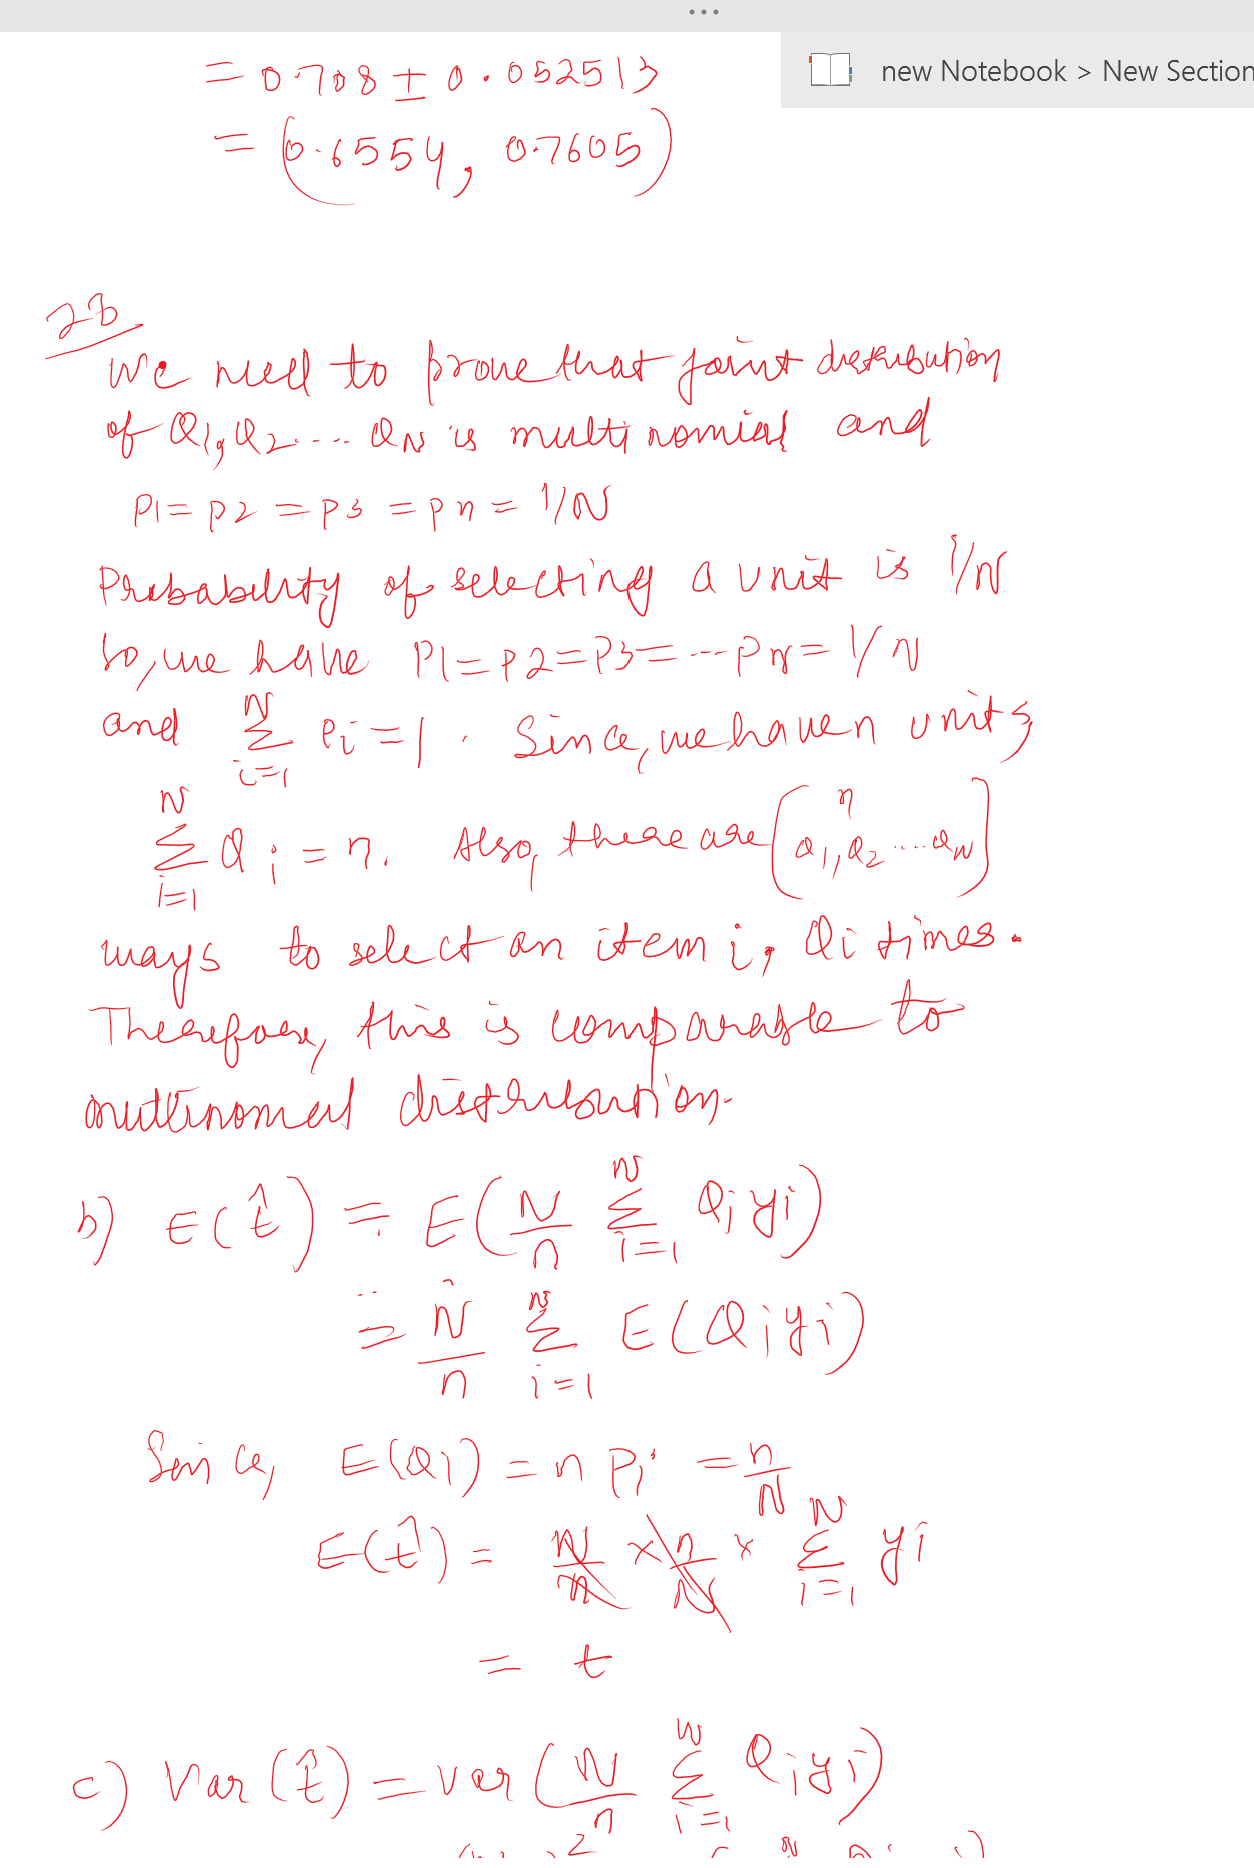 ...
new Notebook > New Section
= 0.708 ± 0.052513
= (0.6554, 0.7605)
28
We need to prove that joint distribution
of Q1, Q2 .... QN is multinomial and
P1 = P2 = P3 = Pn = 1/N
Probability of selecting a unit is 1/N
So, we have P1 = P2 = P3 = --- Pn = 1/N
and N∑i=1 Pi = 1. Since, we have n units,
N∑i=1 Qi = n. Also, there are (n Q1, Q2 .... QN)
ways to select an item i, Qi times.
Therefore, this is comparable to
multinomial distribution.
b) E(t̂) = E(N/n N∑i=1 Qi yi)
= N/n N∑i=1 E(Qi yi)
Since, E(Qi) = n Pi = n/N
E(t̂) = N/n × n/N × N∑i=1 yi
= t
c) Var(t̂) = var(N/n N∑i=1 Qi yi)